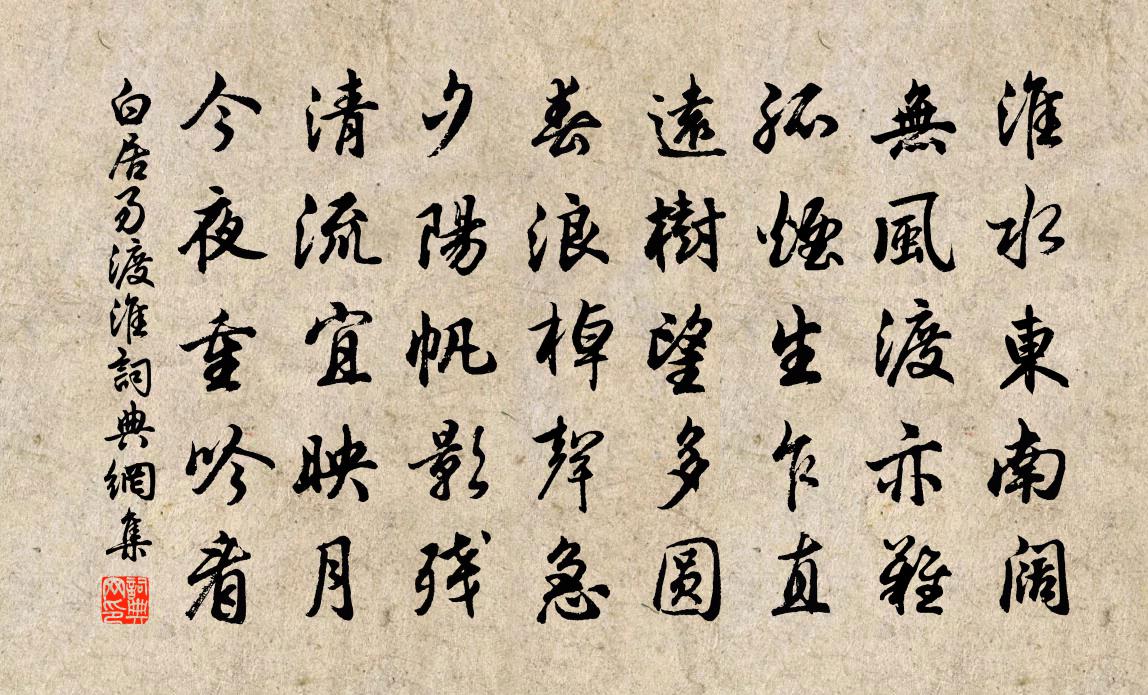 淮水東南闊
無風渡亦難
孤煙生乍直
遠樹望多圓
春浪棹聲急
夕陽帆影残
清流宜映月
今夜重吟看
白居易渡淮詞典網集
詞典網印